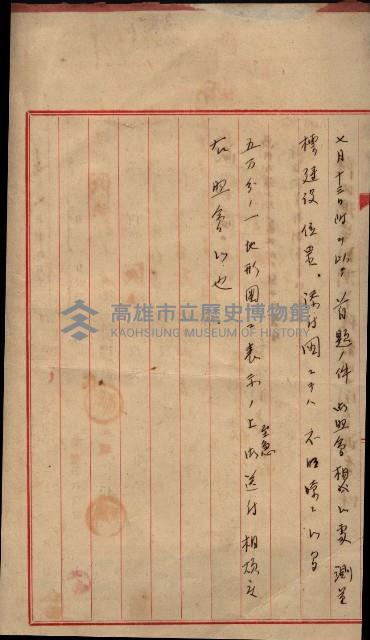 七月十三日附ヲ以テ首題ノ件御照會相成候處測量
標建設位置添付圖ニテハ不明瞭ニ候間
五万分ノ一地形圖ニ表示ノ上至急御送付相煩度
右照會候也
高雄市立歷史博物館
KAOHSIUNG MUSEUM OF HISTORY